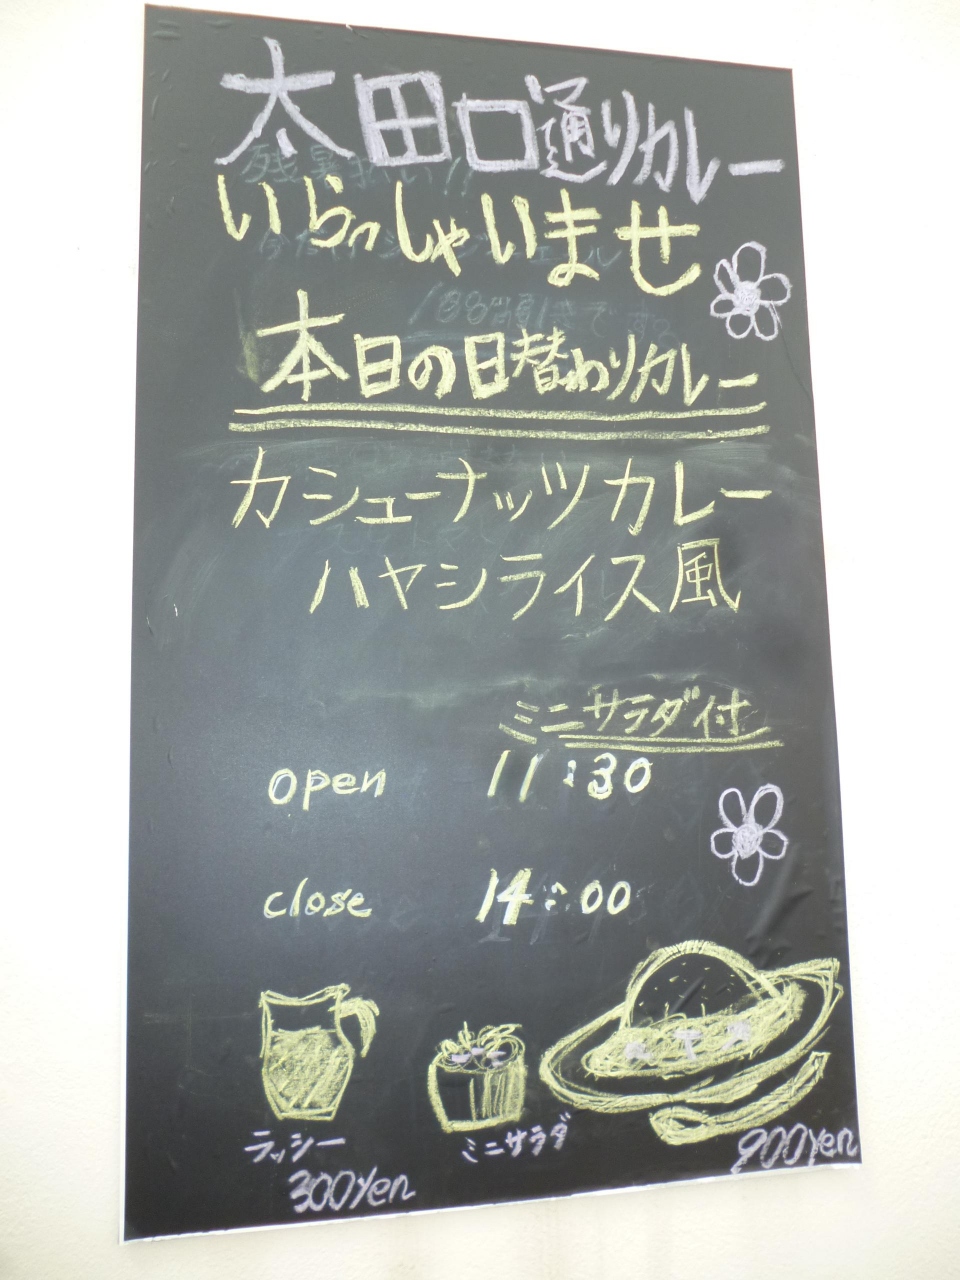 太田口通りカレー
いらっしゃいませ
本日の日替わりカレー
カシューナッツカレー
ハヤシライス風
ミニサラダ付
open 11:30
close 14:00
ラッシー
300yen
ミニサラダ
900yen